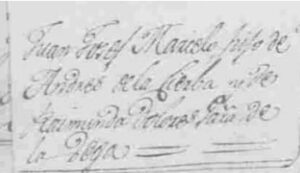 Juan Josef Marcelo hijo de
Andres de la Cierba y de
Raimunda Dolores de
la Vega